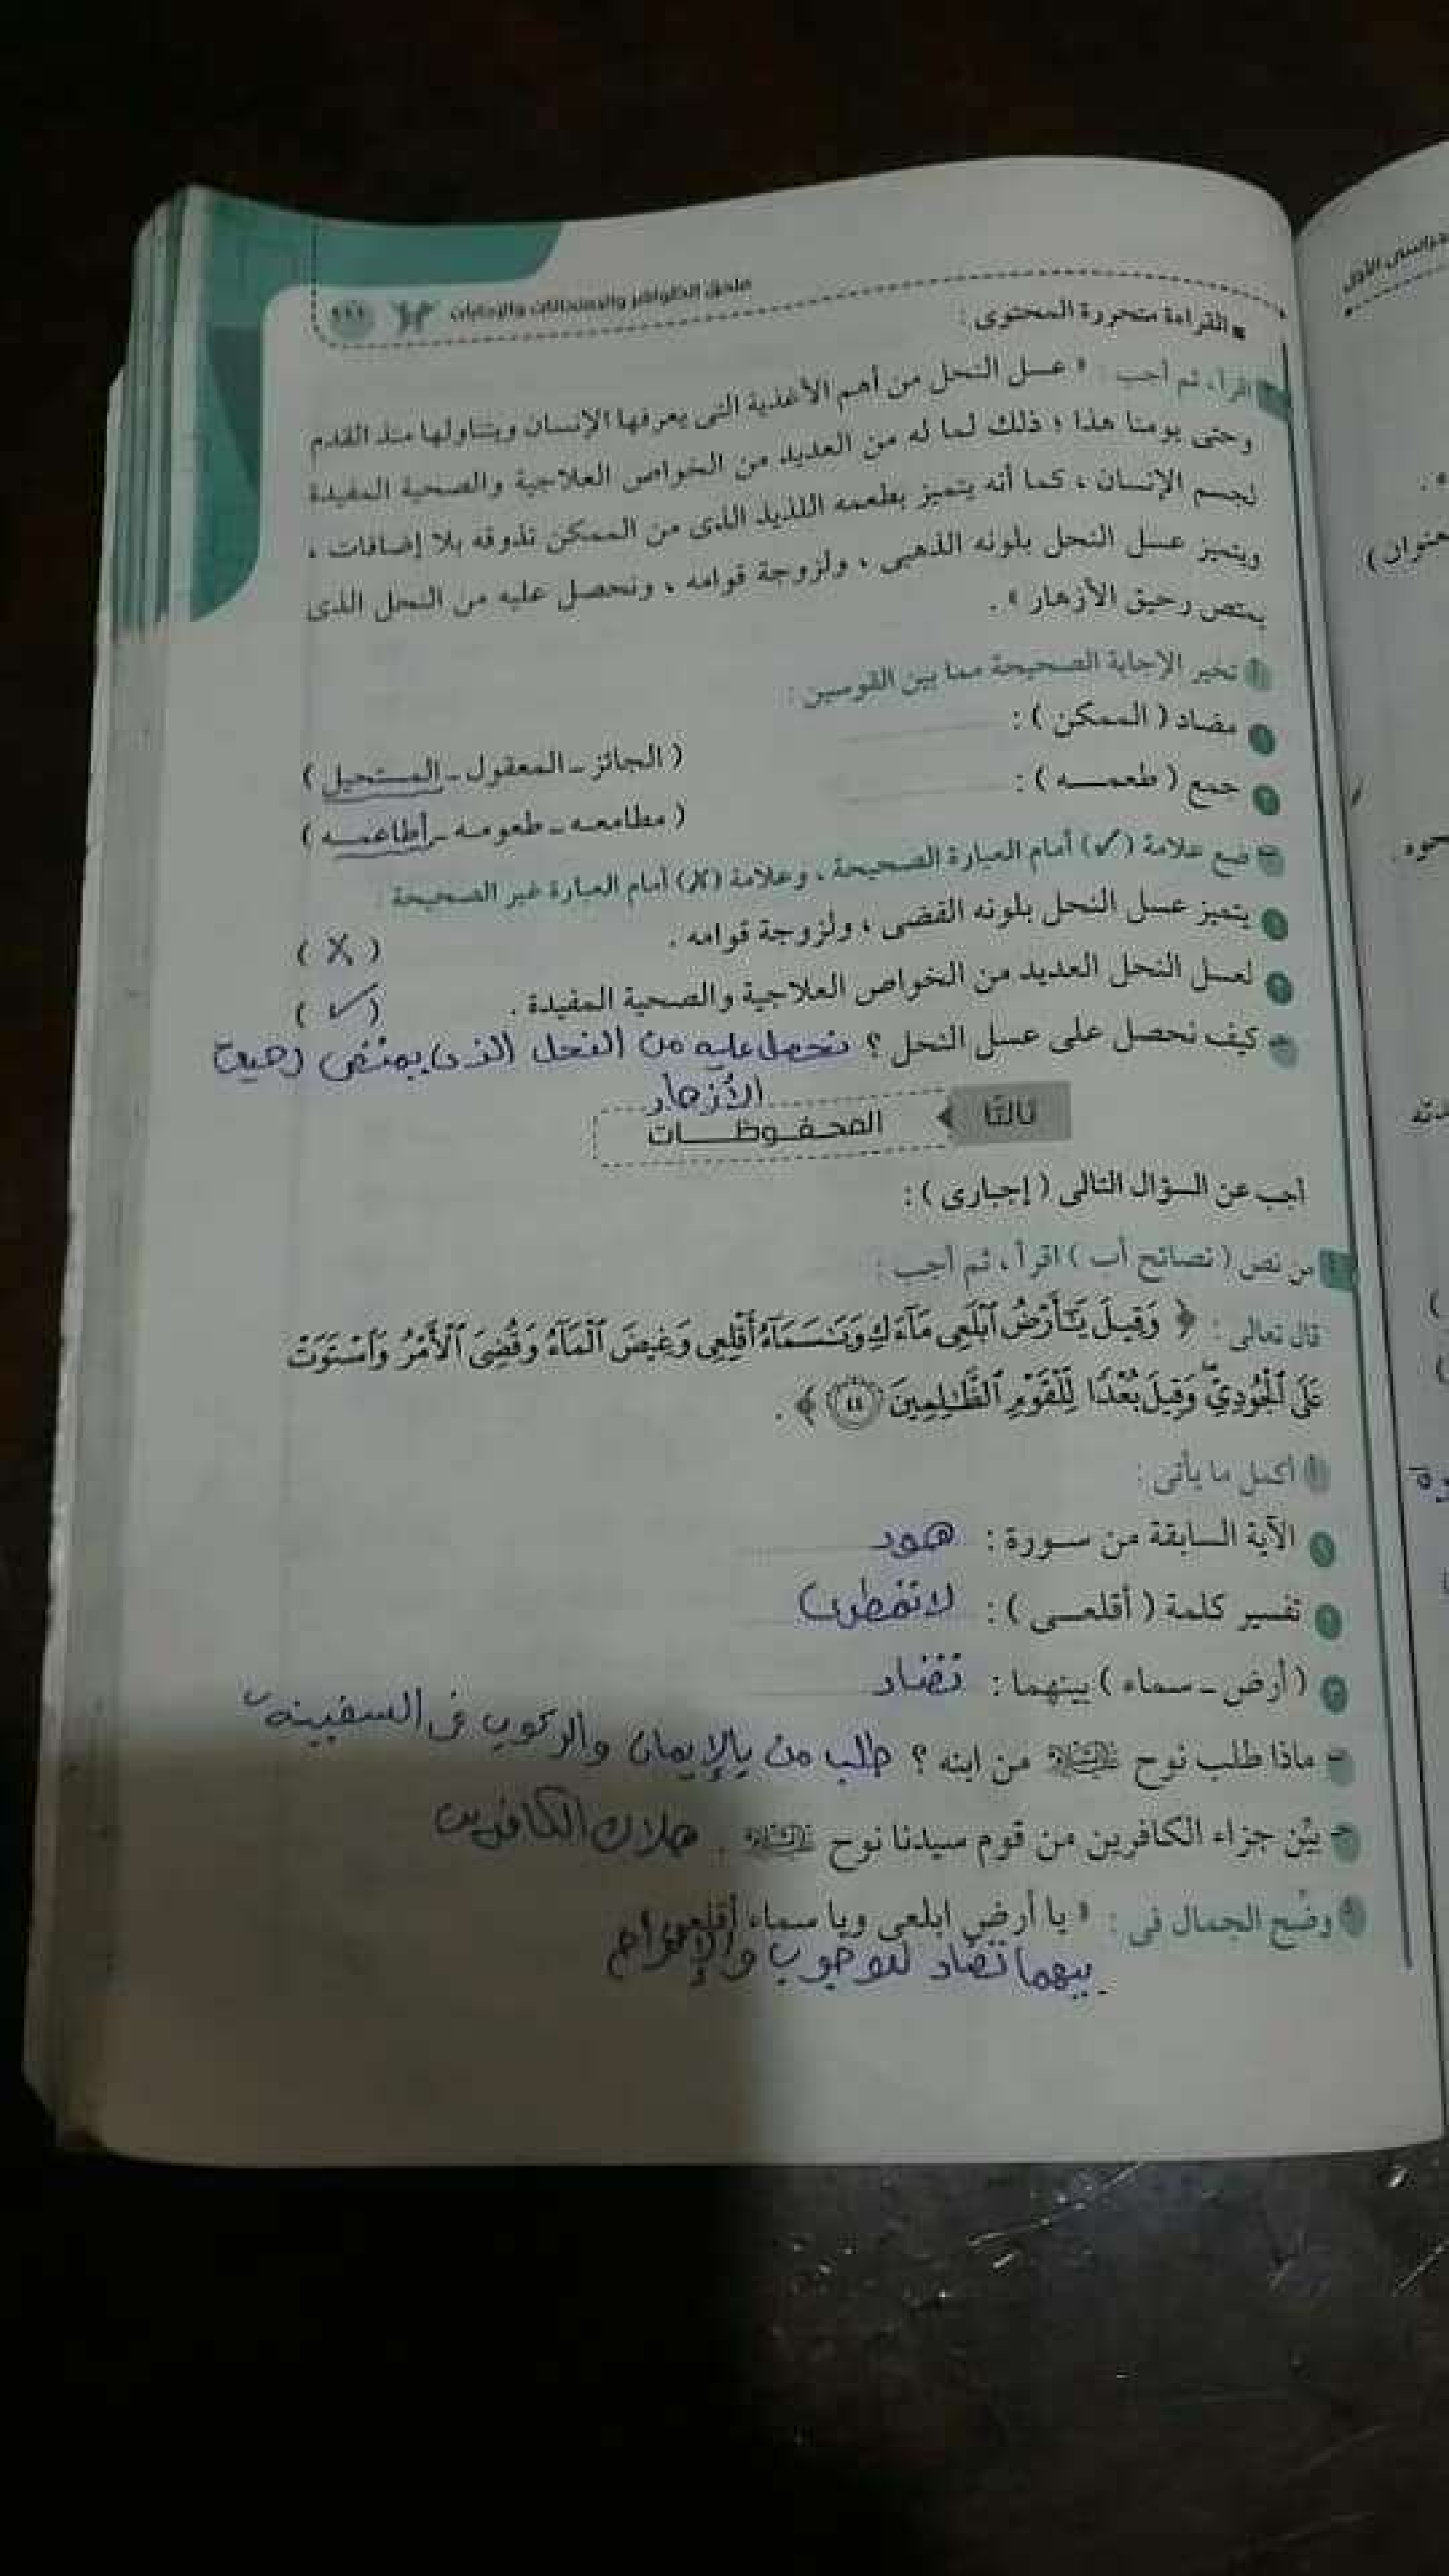 ملحق الظواهر والامتحانات والإجابات
القراءة متحررة المحتوى :
اقرأ، ثم أجب : « عسل النحل من أهم الأغذية التى يعرفها الإنسان ويتناولها منذ القدم
وحتى يومنا هذا ؛ ذلك لما له من العديد من الخواص العلاجية والصحية المفيدة
لجسم الإنسان ، كما أنه يتميز بطعمه اللذيذ الذى من الممكن تذوقه بلا إضافات ،
ويتميز عسل النحل بلونه الذهبى ، ولزوجة قوامه ، ونحصل عليه من النحل الذى
يمتص رحيق الأزهار » .
تخير الإجابة الصحيحة مما بين القوسين :
١ مضاد ( الممكن ) : ( الجائز - المعقول - المستحيل )
٢ جمع ( طعمه ) : ( مطامعه - طعومه - أطاعمه )
ضع علامة (✓) أمام العبارة الصحيحة ، وعلامة (X) أمام العبارة غير الصحيحة
١ يتميز عسل النحل بلونه الفضى ، ولزوجة قوامه . ( X )
٢ لعسل النحل العديد من الخواص العلاجية والصحية المفيدة . ( ✓ )
كيف نحصل على عسل النحل ؟ نحصل عليه من النحل الذى يمتص رحيق
الأزهار
ثالثًا المحفوظات
أجب عن السؤال التالى ( إجبارى ) :
من نص ( نصائح أب ) اقرأ ، ثم أجب :
قال تعالى : ﴿ وَقِيلَ يَٰٓأَرْضُ ٱبْلَعِى مَآءَكِ وَيَٰسَمَآءُ أَقْلِعِى وَغِيضَ ٱلْمَآءُ وَقُضِىَ ٱلْأَمْرُ وَٱسْتَوَتْ
عَلَى ٱلْجُودِىِّ وَقِيلَ بُعْدًا لِّلْقَوْمِ ٱلظَّٰلِمِينَ ٤٤ ﴾ .
أكمل ما يأتى :
١ الآية السابقة من سورة : هود
٢ تفسير كلمة ( أقلعى ) : لا تمطرى
٣ ( أرض - سماء ) بينهما : تضاد
ماذا طلب نوح من ابنه ؟ طلب من بالإيمان والركوب فى السفينة
بيِّن جزاء الكافرين من قوم سيدنا نوح . هلاك الكافرين
وضِّح الجمال فى : « يا أرض ابلعى ويا سماء أقلعى »
بيهما تضاد